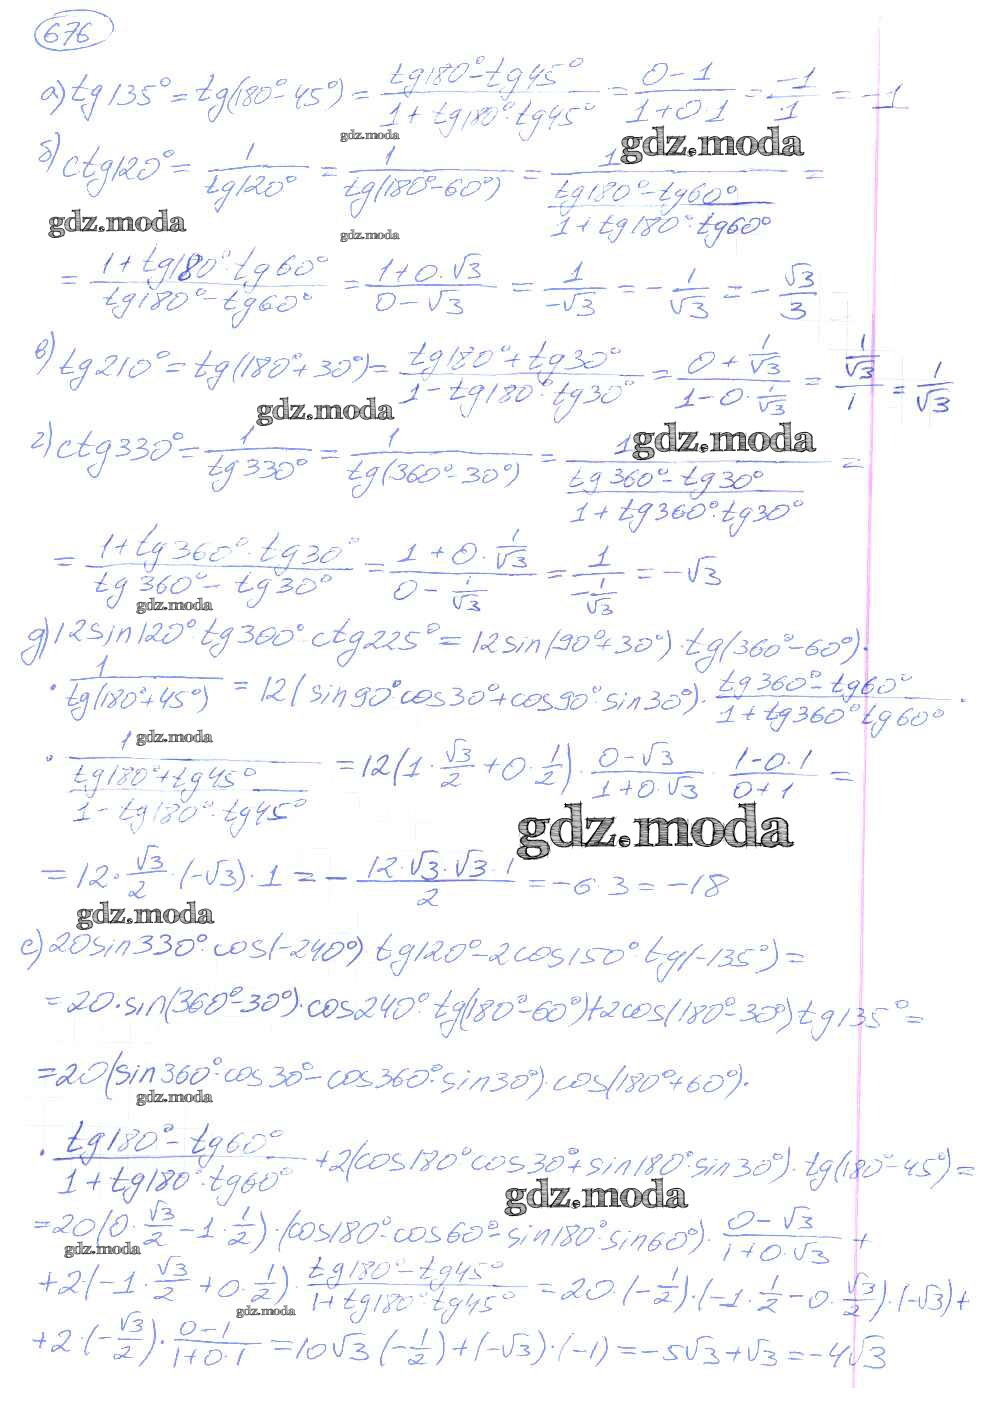 676
а) tg135° = tg(180° - 45°) = (tg180° - tg45°)/(1 + tg180°·tg45°) = (0 - 1)/(1 + 0·1) = -1/1 = -1
gdz.moda
gdz.moda
б) ctg120° = 1/tg120° = 1/tg(180° - 60°) = 1/((tg180° - tg60°)/(1 + tg180°·tg60°)) =
gdz.moda
gdz.moda
= (1 + tg180°·tg60°)/(tg180° - tg60°) = (1 + 0·√3)/(0 - √3) = 1/(-√3) = -1/√3 = -√3/3
в) tg210° = tg(180° + 30°) = (tg180° + tg30°)/(1 - tg180°·tg30°) = (0 + 1/√3)/(1 - 0·1/√3) = (1/√3)/1 = 1/√3
gdz.moda
gdz.moda
г) ctg330° = 1/tg330° = 1/tg(360° - 30°) = 1/((tg360° - tg30°)/(1 + tg360°·tg30°)) =
= (1 + tg360°·tg30°)/(tg360° - tg30°) = (1 + 0·1/√3)/(0 - 1/√3) = 1/(-1/√3) = -√3
gdz.moda
д) 12sin120° tg300°·ctg225° = 12sin(90° + 30°)·tg(360° - 60°)·
·1/tg(180° + 45°) = 12(sin90°·cos30° + cos90°·sin30°)·(tg360° - tg60°)/(1 + tg360° tg60°)·
gdz.moda
·1/((tg180° + tg45°)/(1 - tg180°·tg45°)) = 12(1·√3/2 + 0·1/2)·(0 - √3)/(1 + 0·√3)·(1 - 0·1)/(0 + 1) =
gdz.moda
= 12·√3/2·(-√3)·1 = -(12·√3·√3·1)/2 = -6·3 = -18
gdz.moda
е) 20sin330°·cos(-240°) tg120° - 2cos150°·tg(-135°) =
= 20·sin(360° - 30°)·cos240°·tg(180° - 60°) + 2cos(180° - 30°) tg135° =
= 20(sin360°·cos30° - cos360°·sin30°)·cos(180° + 60°)·
gdz.moda
·(tg180° - tg60°)/(1 + tg180°·tg60°) + 2(cos180° cos30° + sin180°·sin30°)·tg(180° - 45°) =
gdz.moda
= 20(0·√3/2 - 1·1/2)·(cos180°·cos60° - sin180°·sin60°)·(0 - √3)/(1 + 0·√3) +
gdz.moda
+ 2·(-1·√3/2 + 0·1/2)·(tg180° - tg45°)/(1 + tg180° tg45°) = 20·(-1/2)·(-1·1/2 - 0·√3/2)·(-√3) +
gdz.moda
+ 2·(-√3/2)·(0 - 1)/(1 + 0·1) = 10√3(-1/2) + (-√3)·(-1) = -5√3 + √3 = -4√3